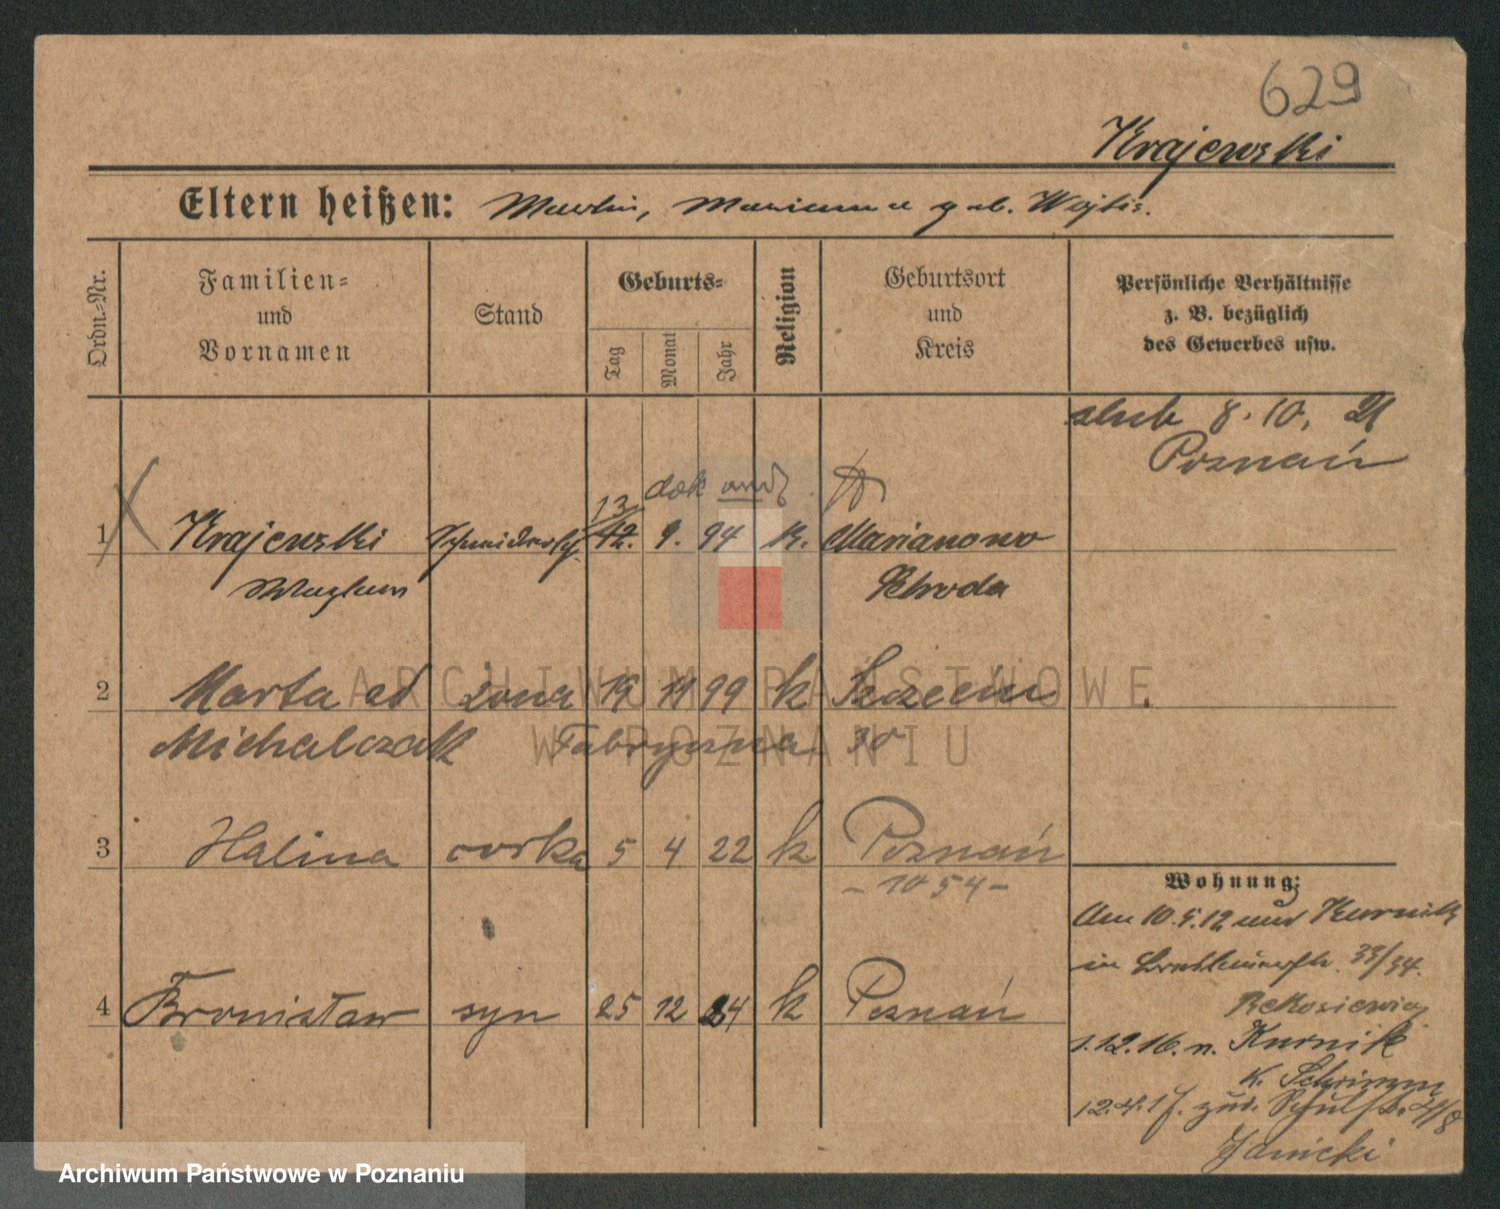 629
Krajewski
Eltern heißen: Martin, Marianna geb. Wojtis.
Ordn.-Nr.
Familien= und Vornamen
Stand
Geburts=
Tag
Monat
Jahr
Religion
Geburtsort und Kreis
Persönliche Verhältnisse z. B. bezüglich des Gewerbes usw.
slub 8. 10. 21
Poznań
dok
13
1 Krajewski 12. 9. 94 k. Marianowo
Schroda
2 Marta żona 19 11 99 k Szczecin
Michalczak Fabryczna 30
3 Halina corka 5 4 22 k Poznań
- 1054 -
4 Bronisław syn 25 12 24 k Poznań
Wohnung:
Am 10.5.12 aus Kurnik
in 33/34.
1.12.16. n. Kurnik
K. Schrimm
12.4.17. zur. Schulstr.
Janicki
ARCHIWUM PAŃSTWOWE
W POZNANIU
Archiwum Państwowe w Poznaniu